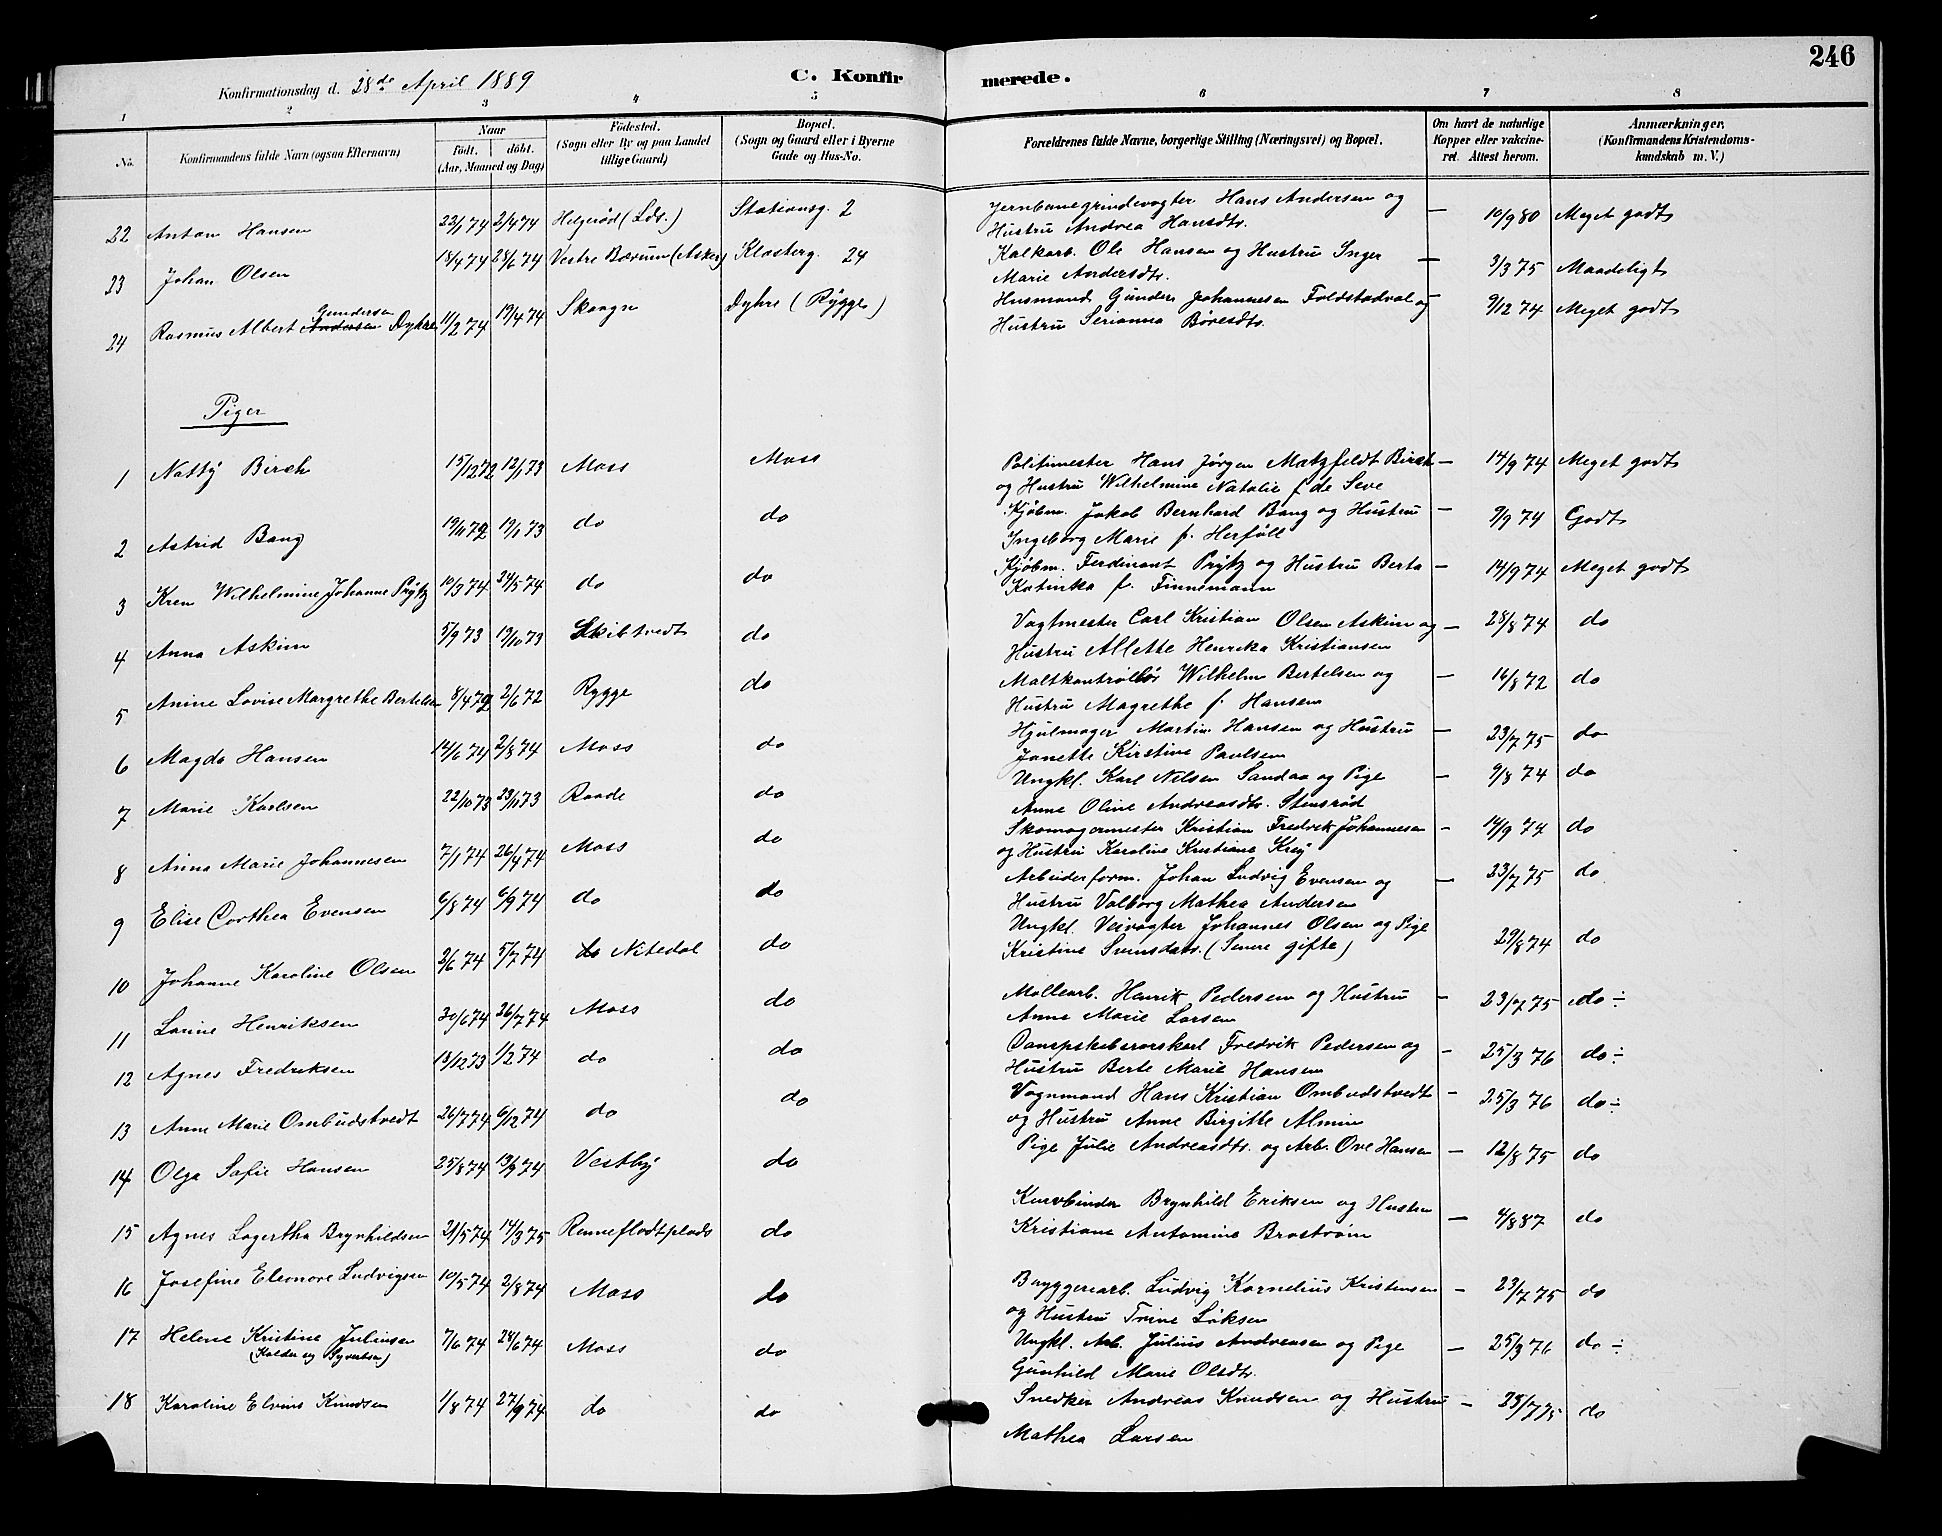 246
Konfirmationsdag d. 28de April 1889
C. Konfirmerede.
1 2 3 4 5 6 7 8
No.
Konfirmandens fulde Navn (ogsaa Efternavn)
Naar
Födt. döbt.
(Aar, Maaned og Dag)
Födested.
(Sogn eller By og paa Landet
tillige Gaard)
Bopæl.
(Sogn og Gaard eller i Byerne
Gade og Hus-No.
Forældrenes fulde Navne, borgerlige Stilling (Næringsvei) og Bopæl.
Om havt de naturlige
Kopper eller vakcine-
ret. Attest herom.
Anmærkninger.
(Konfirmandens Kristendoms-
kundskab m. V.)
22 Anton Hansen 23/1 74 2/4 74 Helgerød (Lds.) Stationsg. 2 Jernbanegrindevogter Hans Andersen og — 10/9 80 Meget godt
Hustru Andrea Hansdtr.
23 Johan Olsen 18/4 74 28/6 74 Vestre Bærum (Asker) Klosterg. 24 Kalkarb. Ole Hansen og Hustru Inger — 3/3 75 Maadeligt
Marie Andersdtr.
24 Rasmus Albert Andersen Gundersen Dyhre 11/2 74 19/4 74 Skaugn Dyhre (Rygge) Husmand Gunder Johannesen Foldstadval og — 9/12 74 Meget godt
Hustru Serianna Børesdtr.
Piger
1 Natty Birch 15/12 72 12/1 73 Moss Moss Politimester Hans Jørgen Matzfeldt Birch — 14/9 74 Meget godt
og Hustru Wilhelmine Natalie f. de Seve
2 Astrid Bang 19/11 72 19/1 73 do do Kjøbm. Jakob Bernhard Bang og Hustru — 9/9 74 Godt
Ingeborg Marie f. Herføll
3 Kren Wilhelmine Johanne Prytz 10/3 74 24/5 74 do do Kjøbm. Ferdinant Prytz og Hustru Berta — 14/9 74 Meget godt
Katinka f. Finnemann
4 Anna Askim 5/9 73 19/10 73 Skibtvedt do Vagtmester Carl Kristian Olsen Askim og — 28/8 74 do
Hustru Alette Henrika Kristiansen
5 Anine Lovise Margrethe Bertelsen 8/4 72 2/6 72 Rygge do Maltkontrollør Wilhelm Bertelsen og — 16/8 72 do
Hustru Magrethe f. Hansen
6 Magda Hansen 14/6 74 2/8 74 Moss do Hjulmager Martin Hansen og Hustru — 23/7 75 do
Janette Kirstine Paulsen
7 Marie Karlsen 22/10 73 23/11 73 Raade do Ungkl. Karl Nilsen Sandaa og Pige — 9/8 74 do
Anne Oline Andreasdtr. Stensrød
8 Anna Marie Johannesen 7/1 74 26/4 74 Moss do Skomagermester Kristian Fredrik Johannesen — 14/9 74 do
og Hustru Karoline Kristiane Krey
9 Elise Dorthea Evensen 6/8 74 6/9 74 do do Arbeiderform. Johan Ludvig Evensen og — 23/7 75 do
Hustru Valborg Mathea Andersen
10 Johanne Karoline Olsen 2/6 74 5/7 74 do Nitedal do Ungkl. Veivogter Johannes Olsen og Pige 29/8 74 do
Kristine Svensdatr. (Senere gifte)
11 Lovine Henriksen 30/6 74 26/7 74 Moss do Møllearb. Henrik Pedersen og Hustru — 23/7 75 do ÷
Anne Marie Larsen
12 Agnes Fredriksen 13/12 73 1/2 74 do do Dampskibsrorskarl Fredrik Pedersen og — 25/3 76 do ÷
Hustru Berte Marie Hansen
13 Anne Marie Ombudstvedt 26/7 74 6/12 74 do do Vognmand Hans Kristian Ombudstvedt — 25/3 76 do ÷
og Hustru Anne Birgitte Almin
14 Olga Sofie Hansen 25/8 74 13/9 74 Vestby do Pige Julie Andreasdtr. og Arb. Ove Hansen — 12/8 75 do
15 Agnes Lagertha Brynhildsen 21/5 74 14/3 75 Renneflodtplads do Kurvbinder Brynhild Eriksen og Hustru — 4/8 87 do
Kristiane Antomine Brostrøm
16 Josefine Eleonore Ludvigsen 10/5 74 2/8 74 Moss do Bryggeriarb. Ludvig Kornelius Kristensen — 23/7 75 do
og Hustru Trine Løksen
17 Helene Kristine Juliusen 7/6 74 28/6 74 Moss do Ungkl. Arb. Julius Andreasen og Pige — 25/3 76 do ÷
(Kalder sig Syvertsen) Gunhild Marie Olsdtr.
18 Karoline Elvine Knudsen 1/8 74 27/9 74 do do Snedker Andreas Knudsen og Hustru — 23/7 75 do
Mathea Larsen